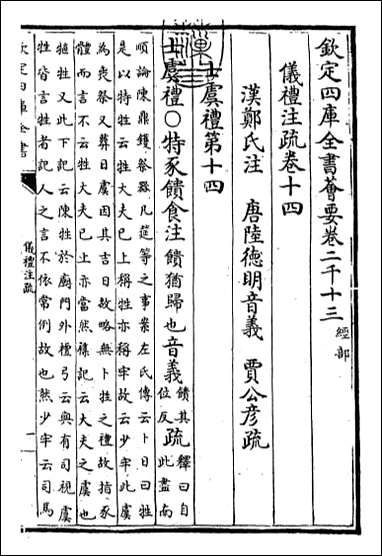 欽定四庫全書薈要卷二千十三 經部
儀禮注疏卷十四
漢鄭氏注 唐陸德明音義 賈公彥疏
士虞禮第十四
士虞禮○特豕饋食注饋猶歸也音義饋其位反疏釋曰自此盡南
順論陳鼎鑊祭器几筵等之事案左氏傳云卜日曰牲
是以特牲云牲大夫已上稱牲亦稱牢故云少牢此虞
為喪祭又葬日虞因其吉日故略無卜牲之禮故指豕
體而言不云牲大夫已上亦當然雜記云大夫之虞也
犆牲又此下記云陳牲於廟門外檀弓云與有司視虞
牲皆言牲者記人之言不依常例故也然少牢云司馬
欽定四庫全書
儀禮注疏
一